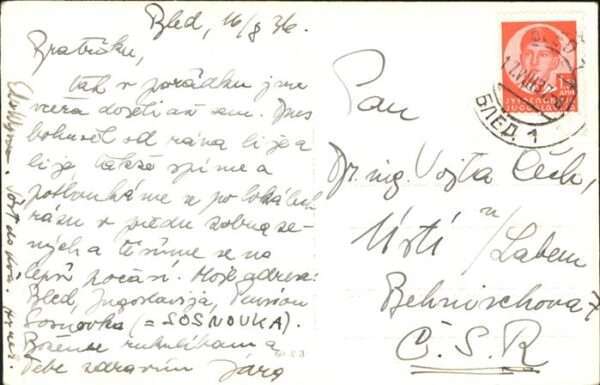 Bled, 16/8 36.
Bratříčku,
tak v pořádku jsme
včera dojeli až sem. Dnes
bohužel od rána lije a
lije takže spíme a
potloukáme se po lokálech
rázu v předu
a těšíme se na
lepší počasí. Moje adresa:
Bled, Jugoslavija, Pension
Sosnovka (= SOSNOVKA).
Božence rukulíbám a
Tebe zdravím Jára
Pan
Dr. ing. Vojta Čech,
Ústí n/Labem
Behnischova 7
Č.S.R
БЛЕД. 1